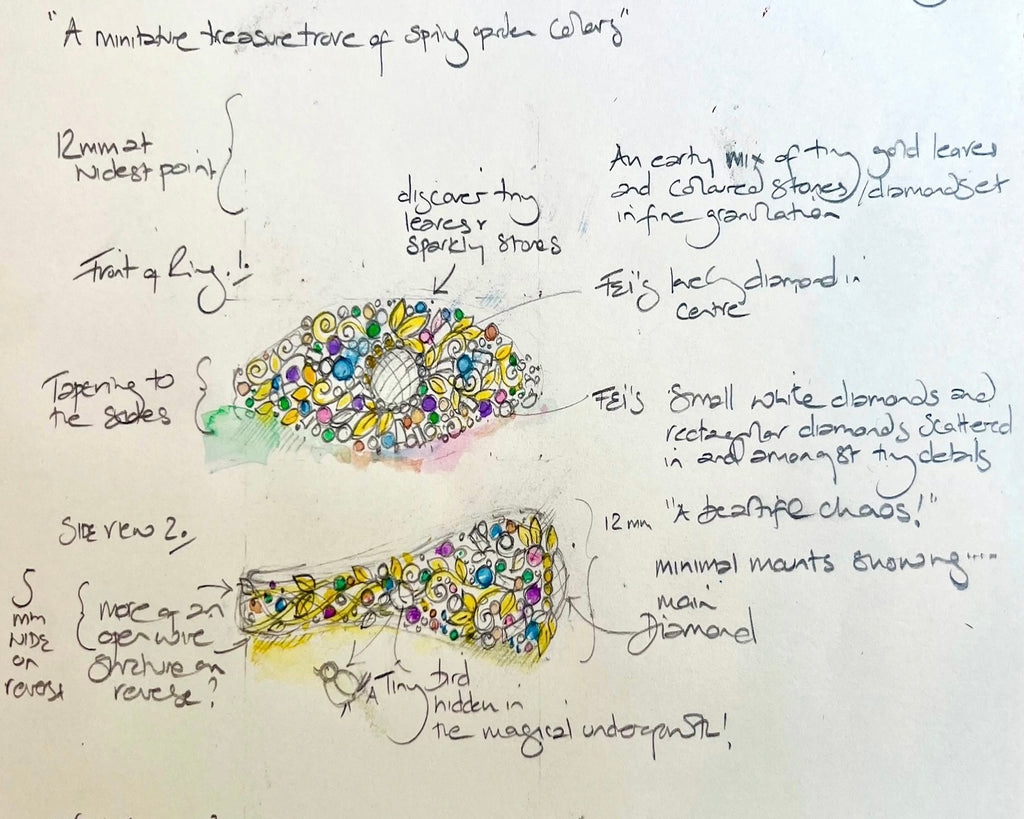 "A minitature treasure trove of spring garden colors"
12mm at
widest point
An earty mix of tiny gold leaves
and coloured stones/diamond set
in fine granulation
discover tiny
leaves +
sparkly stones
Front of Ring. 1.
FEi's lovely diamond in
centre
Tapering to
the sides
FEi's Small white diamonds and
rectangular diamonds scattered
in and amongst tiny details
"A beautiful chaos!"
SIDE view 2.
12 mm
minimal mounts showing
main
Diamond
5
mm
WIDE
on
reverse
more of an
open wire
structure on
reverse?
A Tiny bird
hidden in
the magical undergrowth!